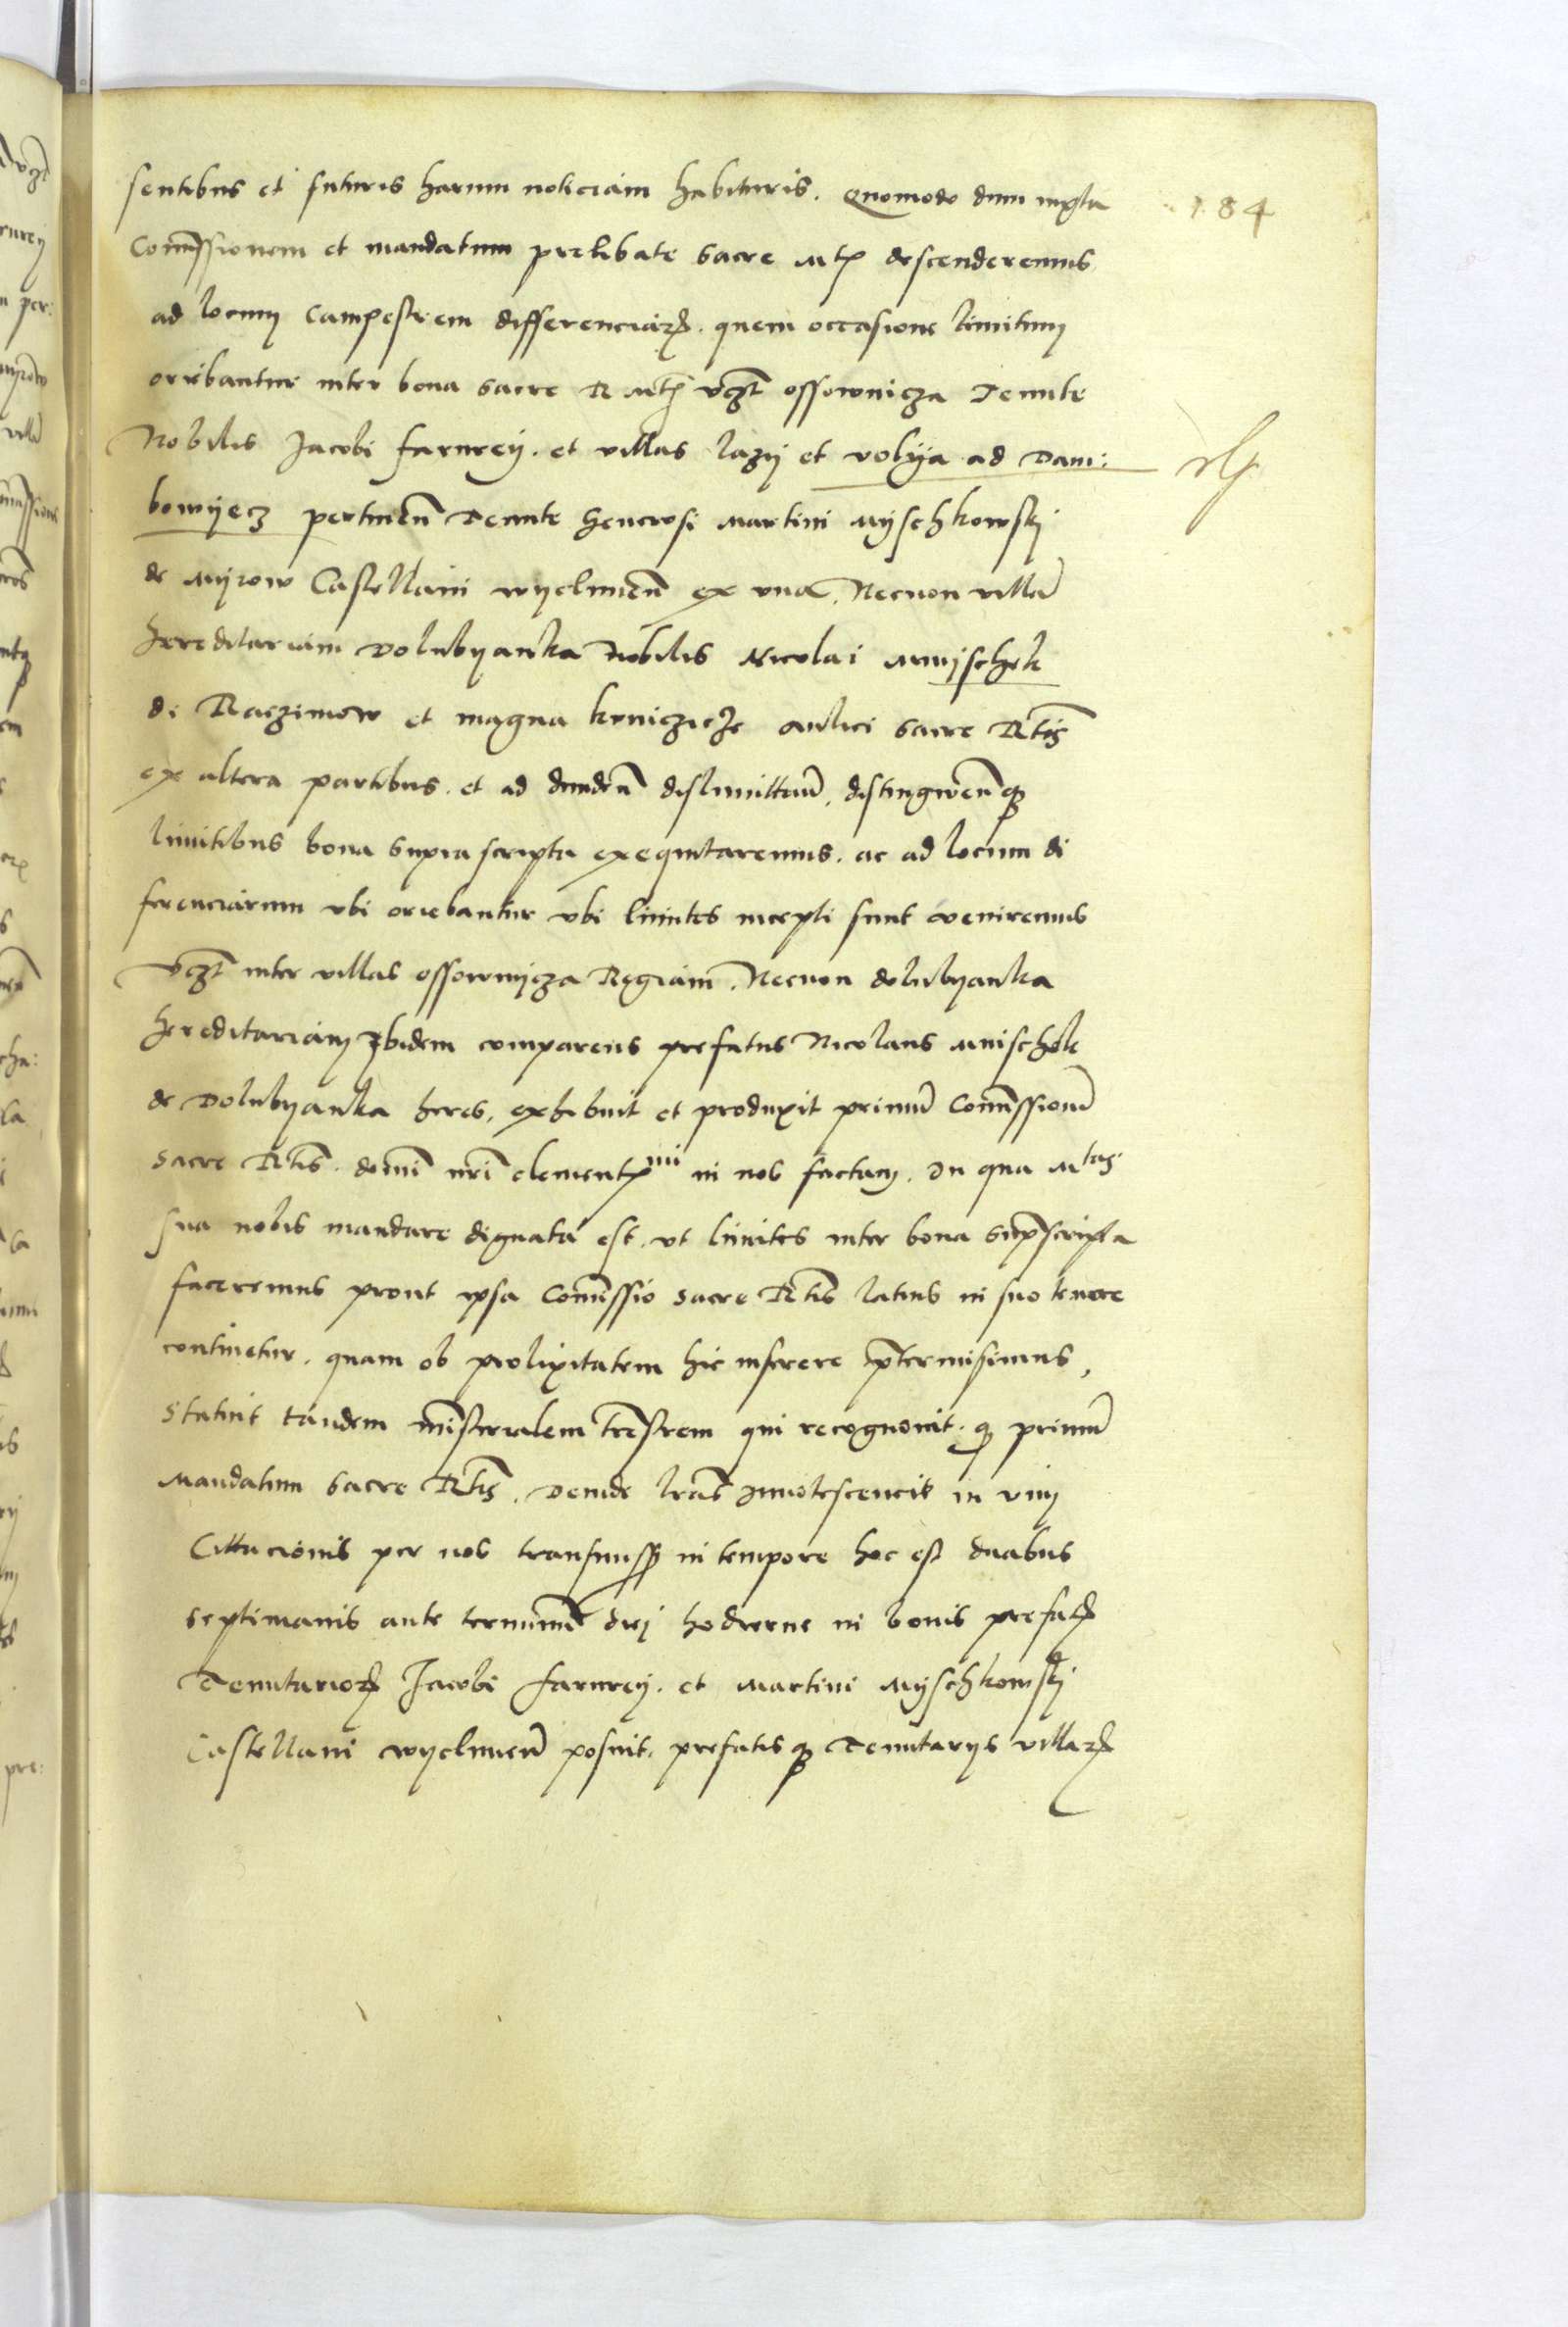 sentibus et futuris harum noticiam habituris. Quomodo dum iuxta
184
Com̄issionem et mandatum prelibate sacre Mtꝭ descenderemus
ad locum Campestrem differenciaꝝ. quem occasione limitum
oriebantur inter bona sacre R Mtꝭ vꝫt ossownicza Tenute
Nobilis Jacobi farurey. et villas lazy et volya ad Dam:
bowyecz pertineñ Tenute Generosi Martini Myschkowskj
de Myrow Castellani wyeluneñ ex vna. Necnon villā
hereditariam Dolubyanka Nobilis Nicolai Mnyschek
de Raczimow et magna kuniczicze aulici sacre Rtis
ex altera partibus. et ad dundeñ dislimittanđ, distingweñ qꝫ
limitibus bona supra scripta exequitaremus. ac ad locum di
ferenciarum vbi oriebantur vbi limites incepti sunt veniremus
vꝫt inter villas ossownycza Regiam. Necnon dolubyanka
hereditariam Ibidem comparens prefatus Nicolaus Mnischek
de Dolubyanka heres, exhibuit et produxit primū Com̄issionē
sacre Rtis. domī nrī clementꝭmi in nos factam. In qua Mtas
sua nobis mandare dignata est. vt limites inter bona sup̄scripta
faceremus prout ipsa Com̄issio sacre Rtis latius in suo tenore
continetur. quam ob prolixitatem hic inserere p̄termisimus,
Statuit tandem mīsterialem tr̄estrem qui recognouit. qꝫ primū
Mandatum sacre Rtis. Deinde lr̄as Innotescencie in vim
Cittacionis per nos transmissꝭ in tempore hoc est duabus
septimanis ante terminū diej hodierne in bonis prefatꝝ
Tenutarioꝝ Jacobi farurey. et Martini Myschkowskj
Castellani wyelunēn posuit. prefatis qꝫ Tenutarys villaꝝ